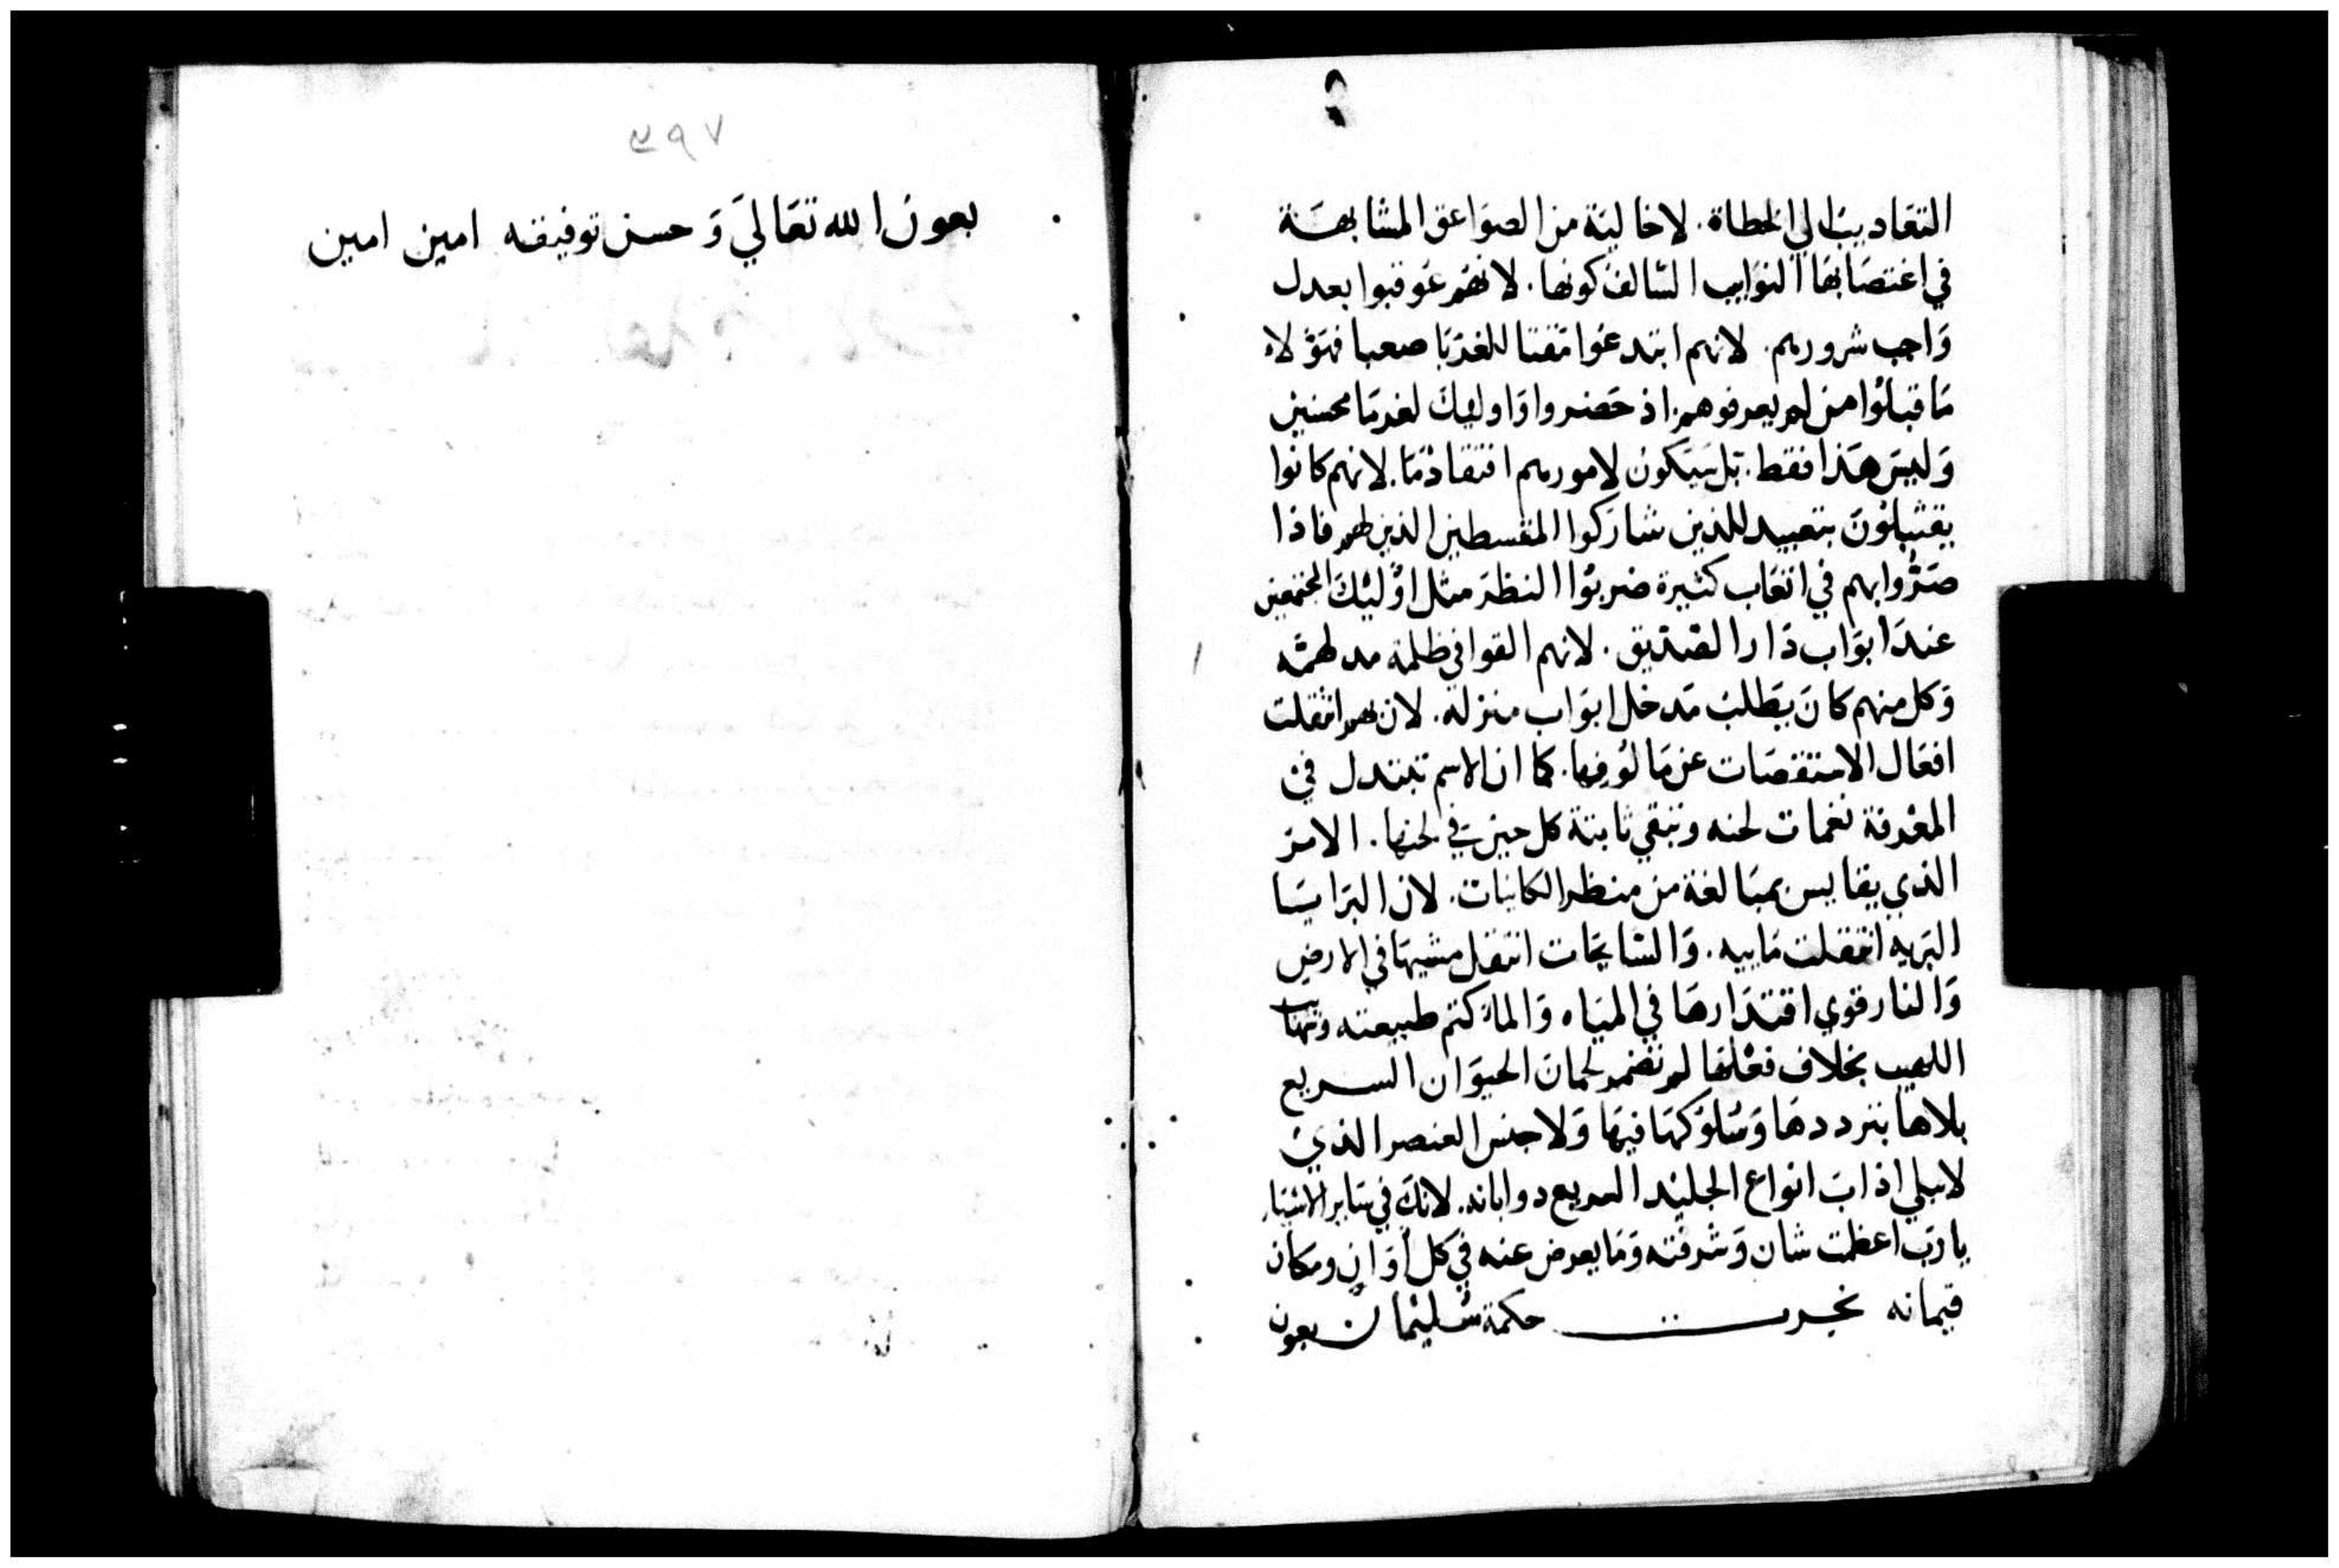 التعاديب الي الخطاة. لا خالية من الصواعق المشابهة
في اغتصابها النوايب السالف كونها. لانهم عوقبوا بعدل
واجب شرورهم. لانهم ابتدعوا مقتا للغربا صعبا فهولاء
ما قبلوا من لم يعرفوهم اذ حضروا واوليك لغربا محسنين
وليس هذا فقط. بل سيكون لامورهم افتقاد ما. لانهم كانوا
يقتبلون بتعبيد للذين شاركوا المقسطين الذين لهم فاذا
صروا بهم في اتعاب كثيرة ضربوا النظر مثل اوليك المجتمعين
عند ابواب دار الصديق. لانهم القوا في ظلمة مدلهمة
وكل منهم كان يطلب مدخل ابواب منزله. لان بهم انتقلت
افعال الاستقصات عن مالوفها. كما ان الاسم تبتدل في
المعزفة نغمات لحنه وتبقي ثابتة كل حين في لحنها. الامر
الذي يقايس بمبالغة من منظر الكاينات. لان البرايا
البرية انتقلت مايية. والسابحات انتقل مشيها في الارض
والنار قوي اقتدارها في المياه والماء كتم طبيعته
اللهيب بخلاف فعلها لم تضمر لحمان الحيوان السريع
بلاها بترددها وسلوكها فيها ولا جنس العنصر الذي
لا يبلي اذاب انواع الجليد السريع ذوبانه. لانك في ساير الاشياء
يا رب اعظمت شان وشرفته وما يعرض عنه في كل اوان ومكان
نجزت حكمة سليمان بعون
٧٩٧
بعون الله تعالي وحسن توفيقه امين امين